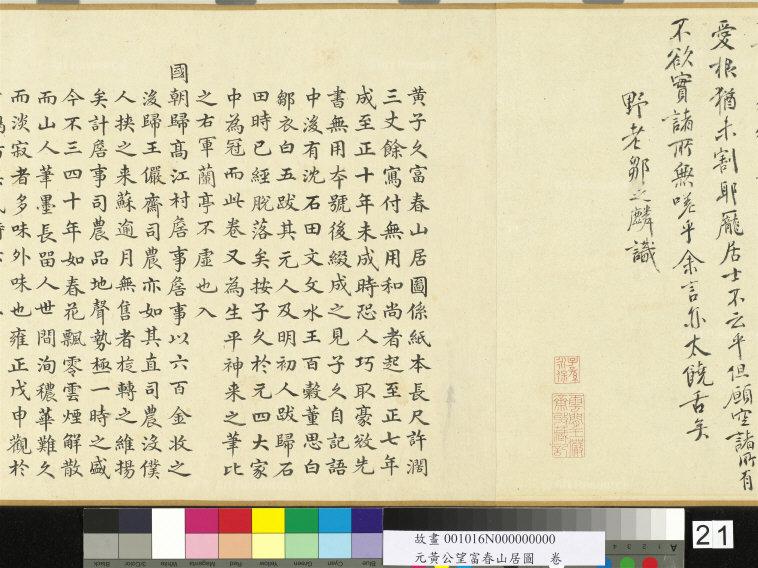 愛根猶未割耶龐居士不云乎但願空諸所有
不欲實諸所無嗟乎余言亦太饒舌矣
野老鄒之麟識
黃子久富春山居圖係紙本長尺許濶
三丈餘寫付無用和尚者起至正七年
成至正十年未成時恐人巧取豪敓先
書無用本號後綴成之見子久自記語
中後有沈石田文文水王百榖董思白
鄒衣白五跋其元人及明初人跋歸石
田時已經脫落矣按子久於元四大家
中為冠而此卷又為生平神来之筆比
之右軍蘭亭不虛也入
國朝歸髙江村詹事詹事以六百金收之
後歸王儼齋司農亦如其直司農沒僕
人挾之来蘇逾月無售者旋轉之維揚
矣計詹事司農品地聲勢極一時之盛
今不三四十年如春花飄零雲煙解散
而山人筆墨長留人世間洵穠華難久
而淡寂者多味外味也雍正戊申觀於
故畫 001016N000000000
元黃公望富春山居圖 卷
21
Black
3/Color
White
Magenta
Red
Yellow
Green
Cyan
Blue